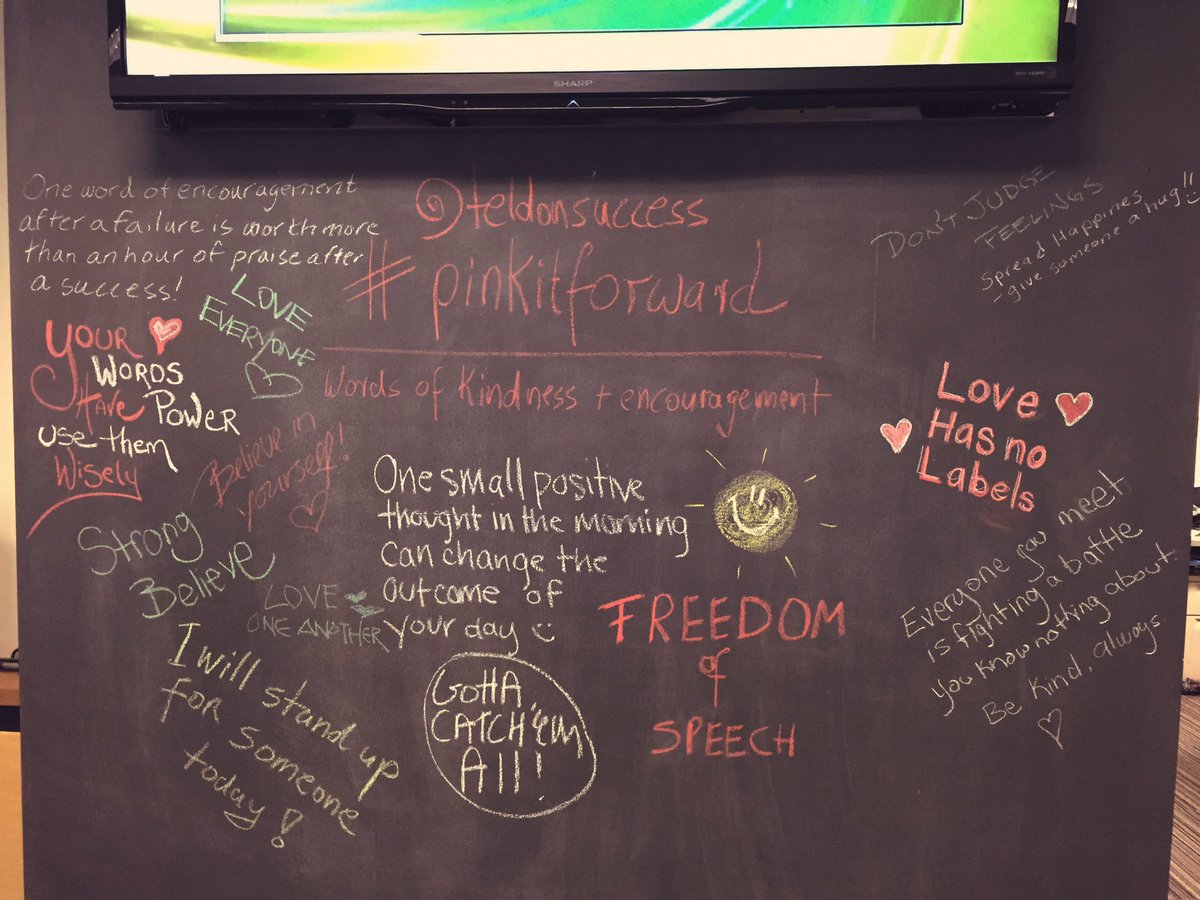 SHARP
One word of encouragement
after a failure is worth more
than an hour of praise after
a success!
@teldonsuccess
#pinkitforward
Words of Kindness + encouragement
DON'T JUDGE
FEELINGS
Spread Happines
- give someone a hug!!
LOVE
EVERYONE
YOUR
WORDS
HAVE POWER
USE THEM
WISELY
Believe in
yourself!
Strong
Believe
LOVE
ONE ANOTHER
One small positive
thought in the morning
can change the
outcome of
your day
Love
Has no
Labels
FREEDOM
of
SPEECH
Everyone you meet
is fighting a battle
you know nothing about.
Be kind, always.
I will stand up
for someone
today!
GOTTA
CATCH 'EM
All!